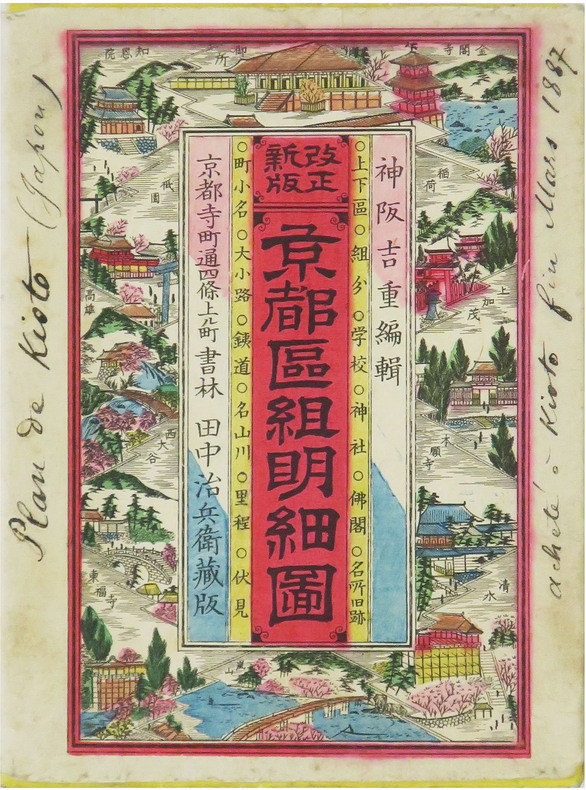 金閣寺
御所
知恩院
稲荷
上加茂
本願寺
清水
神阪吉重編輯
○上下區○組分○学校○神社○佛閣○名所旧跡
改正
新版
京都區組明細圖
○町小名○大小路○銕道○名山川○里程○伏見
京都寺町通四條上ル町書林 田中治兵衛藏版
祇園
高雄
西大谷
東福寺
Plan de Kioto (Japon)
acheté à Kioto fin Mars 1887